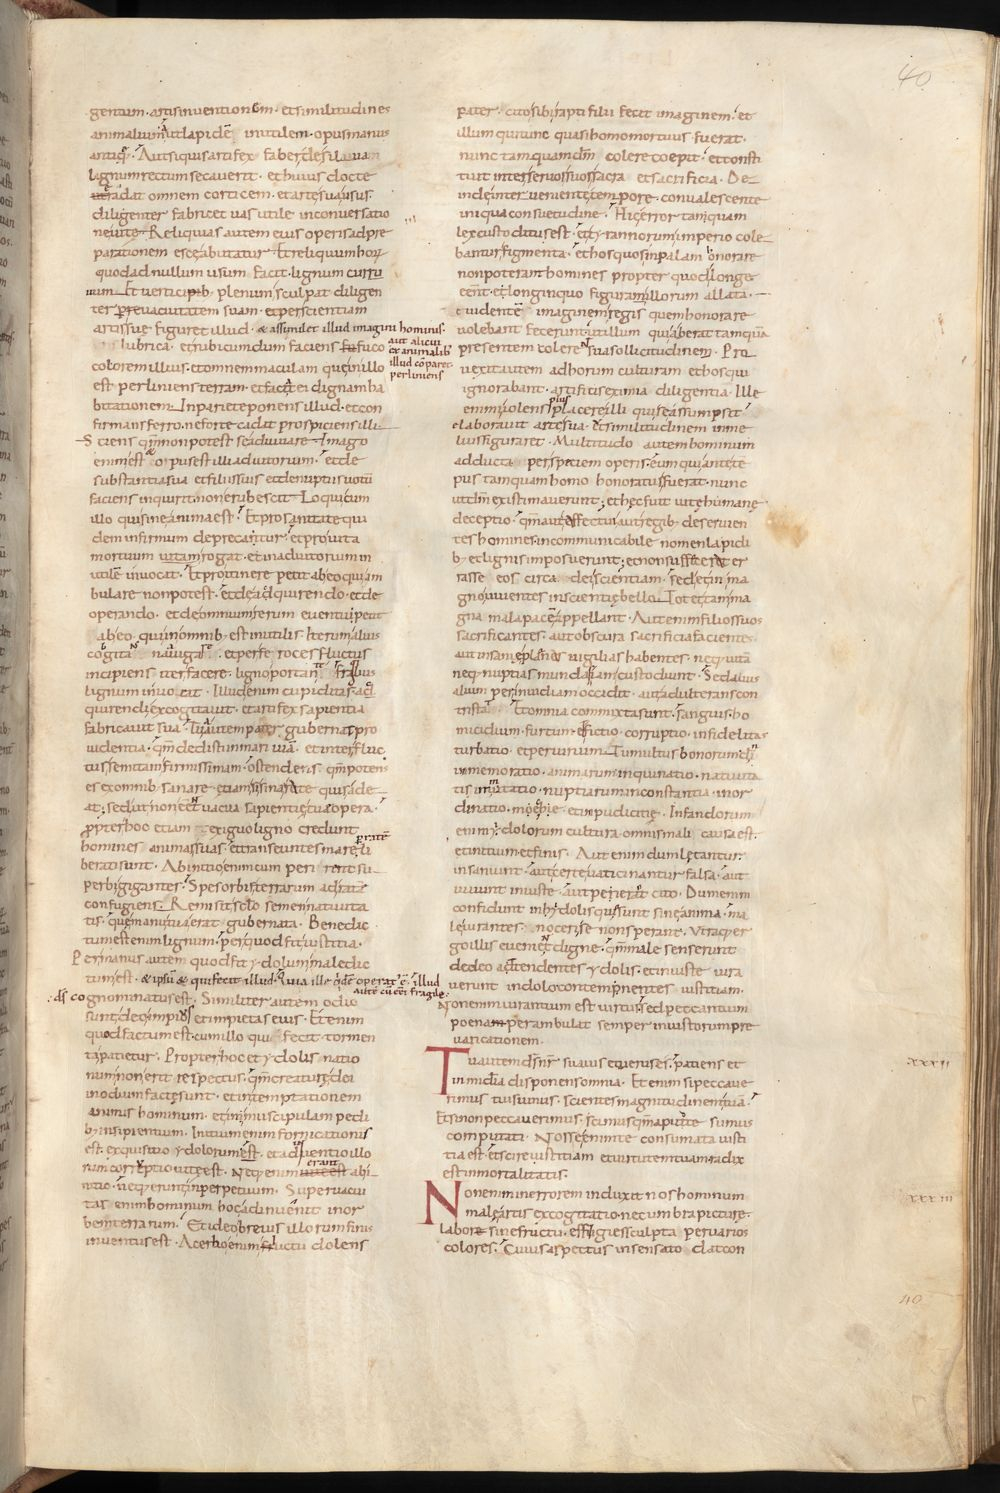 40
gentium · artis inventionem · et similitudines
animalium · Aut lapidē inutilem · opus manus
antiq · Aut siquis artifex faber de silva
lignum rectum secauerit · et huius docte
radat omnem corticem · et arte sua usus ·
diligenter fabricet uas utile in conuersatio
ne uite · Reliquias autem eius operis ad pre
parationem escę abutatur · Et reliquum hor
quod ad nullum usum facit · lignum curuu
Et uerticib plenum sculpat diligen
ter per uacuitatem suam · et per scientiam
artis sue figuret illud · & assimilet illud imagini hominis ·
aut alicui
ex animalib
illud cōparet
perliniens
lubrica · et rubicundum faciens fuco
colorem illius · et omnem maculam que in illo
est perliniens terram · et faciet ei dignam ha
bitationem · In pariete ponens illud · et con
firmans ferro · ne forte cadat prospiciens illi
Sciens qm̄ non potest se adiuuare · Imago
enim est · & opus est illi adiutorium · et de
substantia sua et filiis suis et de nuptiis uotū
faciens inquirit · non erubescit Loqui cum
illo qui sine anima est · Et pro sanitate qui
dem infirmum deprecatur · et pro uita
mortuum uitam rogat · et in adiutorium in
utilē inuocat · Et pro itinere petit ab eo qui am
bulare non potest · et de adquirendo · et de
operando · et de omnium rerum euentu petit
ab eo · qui in omnib · est inutilis · Iterum alius
cogitans nauigare · et per feroces fluctus
incipiens iter facere · ligno portanti fragilius
lignum inuocat · Illud enim cupiditas · ad
quirendi excogitauit · et artifex sapientia
fabricauit sua · Tu autem pater gubernas pro
uidentia · qm̄ dedisti in mari uiā · et inter fluc
tus semitam firmissimam · ostendens qm̄ potens
es ex omnib sanare · etiam si sine arte quis ade
at · sed ut non essent uacua sapientię tuę opera ·
Propter hoc etiam exiguo ligno credunt
homines animas suas · et transeuntes mare
per ratē
li
berati sunt · Ab initio enim cum perirent su
perbi gigantes · Spes orbis terrarum ad ratē
confugiens · Remisit solo semen natiuita
tis · que manu tua erat gubernata · Benedic
tum est enim lignum · per quod fit iustitia ·
Per manus autem quod fit ydolum maledic
tum est · & ipsū & qui fecit illud · Quia ille qdē operat̄ ē · illud
autē cū ect fragile ·
ds cognominatus est · Similiter autem odio
sunt deo impius et impietas eius · Et enim
quod factum est · cum illo qui fecit tormen
ta patietur · Propter hoc et ydolis natio
num non erit respectus · qm̄ creaturę dei
in odium factę sunt · et in temptationem
animis hominum · et in muscipulam pedi
b insipientium · Initium enim fornicationis
est · exquisitio ydolorum est · et adinuentio illo
rum corruptio uitę est · Neq enim
erant
ab i
nitio · neq erunt in perpetuum · Superuacui
tas enim hominum hoc adinuenit in or
bem terrarum · Et ideo breuis illorum finis
inuentus est · Acerbo enim luctu dolens
pater · cito sibi rapti filii fecit imaginem · et
illum qui tunc quasi homo mortuus fuerat ·
nunc tamquam dm̄ colere coepit · et consti
tuit inter seruos suos sacra et sacrificia · De
inde interueniente tempore · conualescente
iniqua consuetudine · Hic error tamquam
lex custoditus est · et tyrannorum imperio cole
bantur figmenta · et hos quos in palam honorare
non poterant homines propter quod longe
eēnt · et longinquo figura illorum allata ·
euidentē imaginem regis quem honorare
volebant fecerunt · ut illum qui aberat tamquā
presentem colerent sua sollicitudinem · Pro
uexit autem ad horum culturam et hos qui
ignorabant · artificis eximia diligentia · Ille
enim uolens plus placere illi qui se assumpsit ·
elaborauit arte sua · ut similitudinem in me
lius figuraret · Multitudo autem hominum
adducta per speciem operis · eum qui ante tē
pus tamquam homo honoratus fuerat · nunc
ut dm̄ existimauerunt · et hec fuit uite humanę
deceptio · qm̄ aut affectui aut regib deseruien
tes homines · incommunicabile nomen lapidi
b · et lignis imposuerunt · et non suffecerat er
rasse eos circa dei scientiam · sed et in ma
gno uiuentes inscientię bello · Tot et tam ma
gna mala pacē appellant · Aut enim filios suos
sacrificantes · aut obscura sacrificia facientes ·
aut insanię plenas uigilias habentes · neq uitā
neq · nuptias mundas iam custodiunt · Sed alius
alium per inuidiam occidit · aut adulterans con
tristat · Et omnia commixta sunt · sanguis · ho
micidium · furtum · et fictio · corruptio · infidelitas
turbatio · et periurium · Tumultus bonorum · di
inmemoratio · animarum inquinatio · natiuita
tis inmutatio · nuptiarum inconstantia · inor
dinatio · moechię · et inpudicitię · Infandorum
enim ydolorum cultura · omnis mali causa est ·
et initium · et finis · Aut enim dum lętantur ·
insaniunt · aut certe uaticinantur falsa · aut
uiuunt iniuste · aut peierant cito · Dum enim
confidunt in ydolis quę sunt sine anima · ma
le iurantes · noceri se non sperant · Vtraq er
go illis euenient digne · qm̄ male senserunt
de deo adtendentes ydolis · et iniuste iura
uerunt in dolo contempnentes iustitiam ·
Non enim iurantium est uirtus · sed peccantium
poena perambulat semper iniustorum pre
uaricationem ·
XXXII
Tu autem ds nr̄ suauis et uerus es · patiens et
in mīdia disponens omnia · Et enim si peccaue
rimus tui sumus · scientes magnitudinem tuā ·
Et si non peccauerimus · scimus qm̄ apud te sumus
computati · Nosse enim te consumata iusti
tia est · et scire iustitiam et uirtutem tuam radix
est inmortalitatis ·
XXXIII
Non enim in errorem induxit nos hominum
malę artis excogitatio · nec umbra picturę ·
labore sine fructu · effigies sculpta per uarios
colores · Cuius aspectus insensato dat con
40